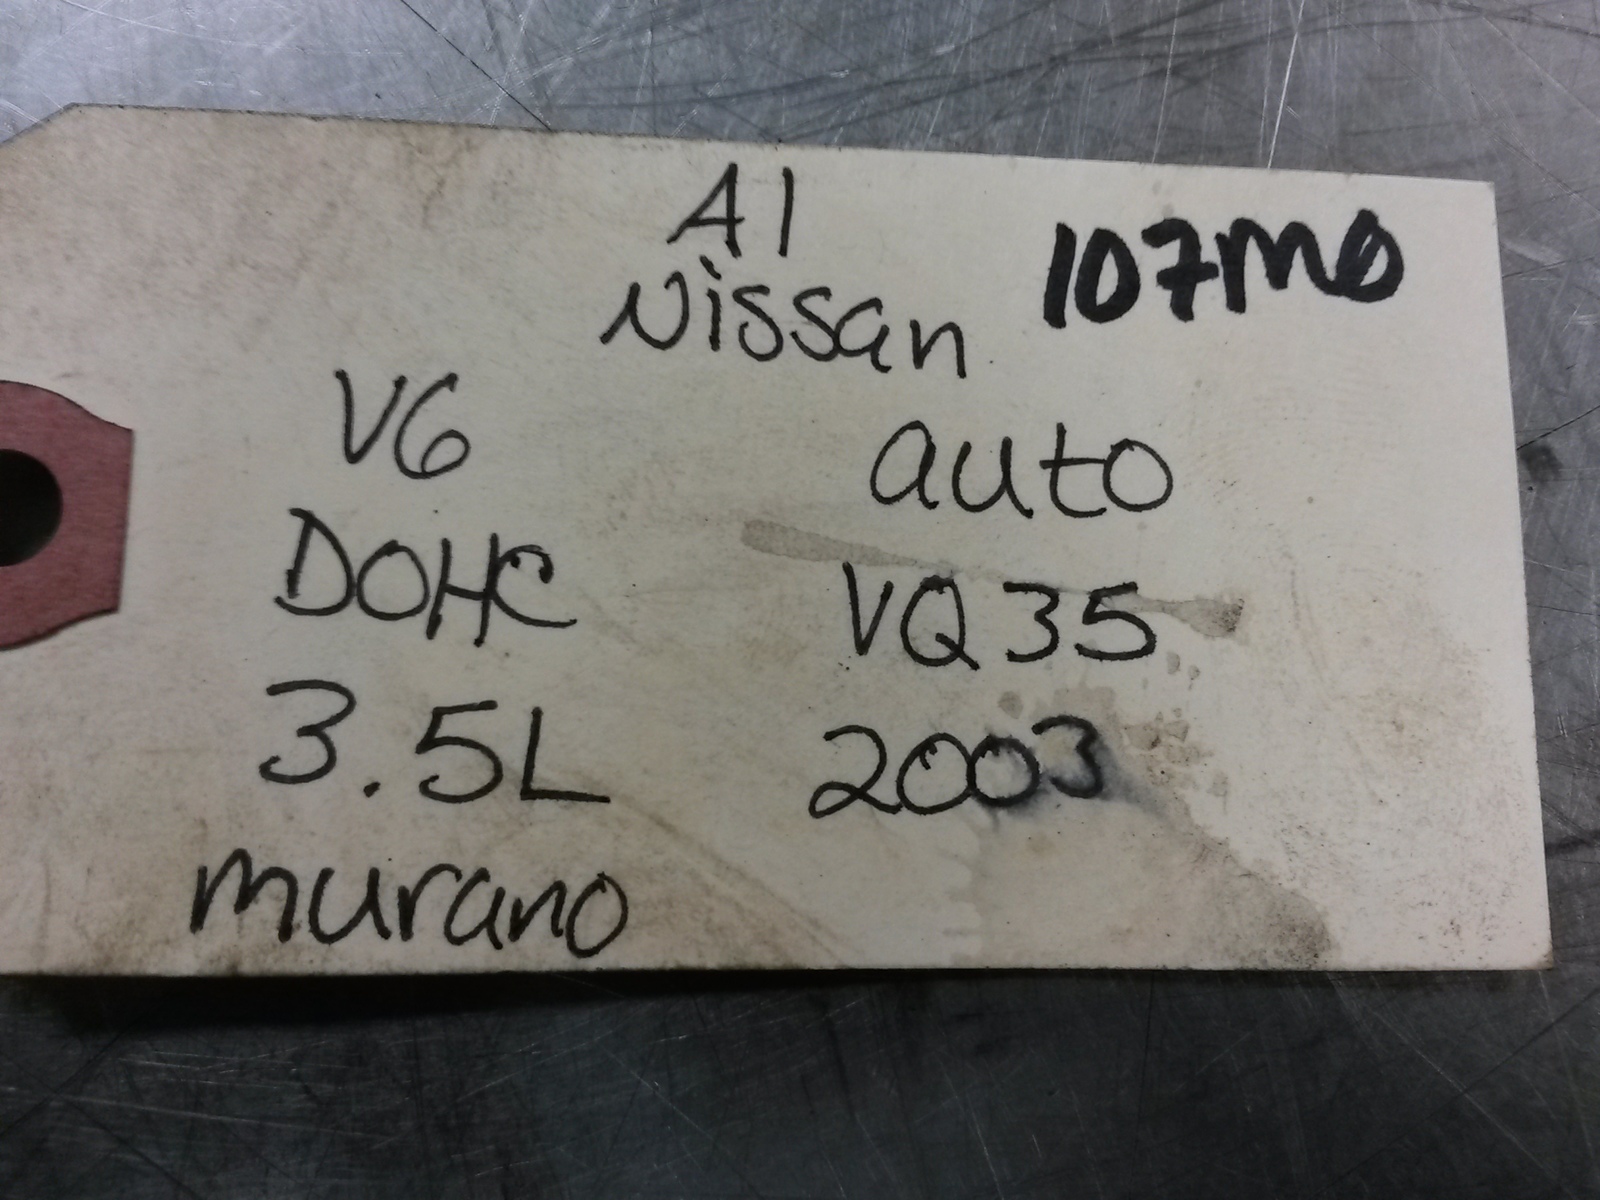 A1
Nissan 107M0
V6 auto
DOHC VQ35
3.5L 2003
murano